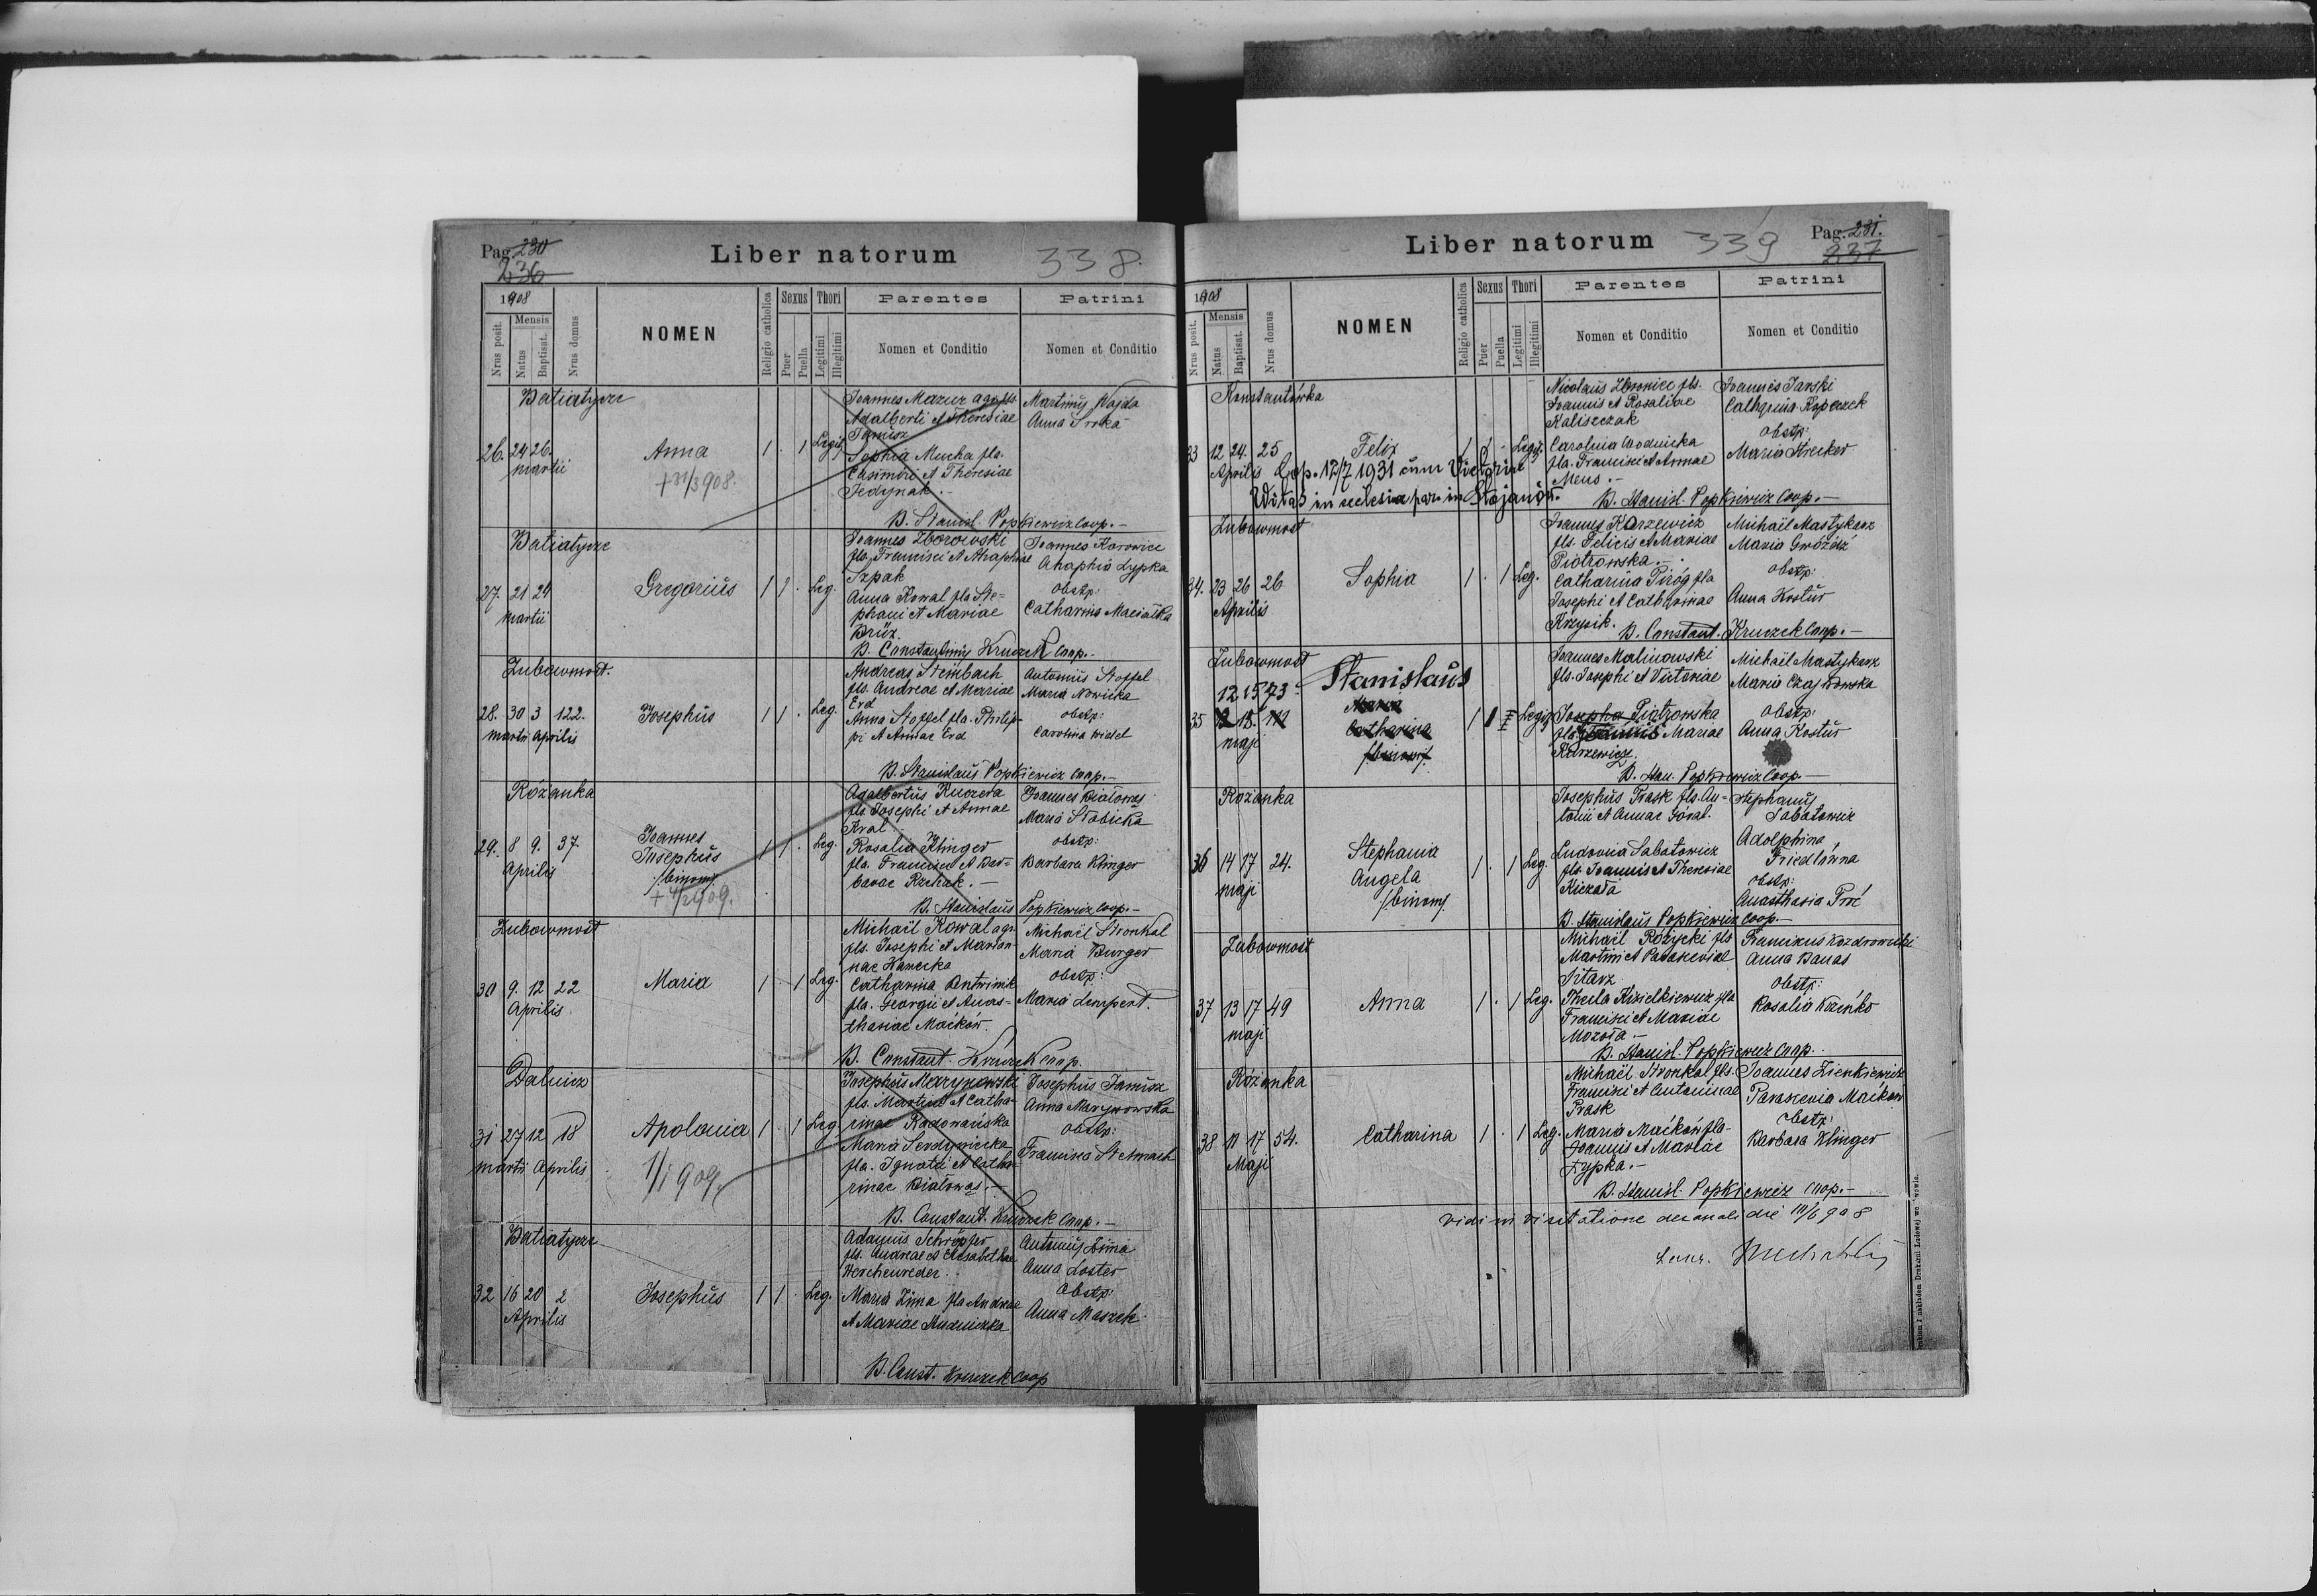 Pag. 230
236
Liber natorum
338.
1908
Nrus posit.
Mensis
Natus
Baptisat.
Nrus domus
NOMEN
Religio catholica
Sexus
Puer
Puella
Thori
Legitimi
Illegitimi
Parentes
Nomen et Conditio
Patrini
Nomen et Conditio
Batiatycze
26. 24 26. Anna 1 . 1 Legit.
martii
+ 31/3 908.
Joannes Mazur agr. fls.
Adalberti et Theresiae
Janisz
Sophia Mucha fla.
Casimiri et Theresiae
Jedynak.-
Martinus Wajda
Anna
B. Stanisl. Popkiewicz Coop.-
Batiatycze
27. 21 24 Gregorius 1 1 . Leg.
martii
Joannes Zborowski
fls. Francisci et Ahaphiae
Szpak
Anna Kowal fla Ste-
phani et Mariae
Joannes Korowice
Ahaphia Lypka
obstp:
B. Constantinus Kruczek Coop.-
Zubowmost.
28. 30 3 122. Josephus 1 1 . Leg.
martii Aprilis
Andreas Steinbach
fls. Andreae et Mariae
Erd
Anna Stoffel fla. Philip-
pi et Annae Erd
Antonius Stoffel
Maria Nowicka
obstp:
Carolina
B. Stanislaus Popkiewicz Coop.-
Różanka
29. 8 9. 37. Joannes
Josephus 1 1 . Leg.
Aprilis
/binom/
+ 4/2 909.
Adalbertus Kuczera
fls. Josephi et Annae
Kral
Rosalia Klinger
fla. Francisci et Bar-
barae Rzehak.-
Joannes Białowąs
Maria Słobicka
obstp:
Barbara Klinger
B. Stanislaus Popkiewicz Coop.-
Zubowmost
30 9. 12 22 Maria 1 . 1 Leg.
Aprilis
Michaël Kowal agr.
fls. Josephi et Marian-
nae Hawecka
Catharina
fla. Georgii et Anas-
thasiae Maćków.
Michaël Stronkal
Maria Burger
obstp:
Maria Lempert.
B. Constant. Kruczek Coop.
Dalnicz
31 27 12 18 Apolonia 1 . 1 Leg
martii Aprilis
1/1 909.
Josephus Marynowski
fls. Martini et Catha-
rinae Radowańska
Maria
fla. Ignatii et Catha-
rinae Białowąs.-
Josephus Janisz
Anna Marynowska
obstp:
Francisca Stelmach
B. Constant. Kruczek Coop.-
Batiatycze
32 16 20 2 Josephus 1 1 . Leg.
Aprilis
Adamus Schröpfer
fls. Andreae et Elisabethae
Herchenreder.
Maria Zima fla Andreae
et Mariae Mudniczka
Antonius Zima
Anna Loster
obstp:
Anna Maszek
B. Const. Kruczek Coop
Liber natorum
339
Pag. 231.
237
1908
Nrus posit.
Mensis
Natus
Baptisat.
Nrus domus
NOMEN
Religio catholica
Sexus
Puer
Puella
Thori
Legitimi
Illegitimi
Parentes
Nomen et Conditio
Patrini
Nomen et Conditio
Konstantówka
33 12 24. 25 Felix 1 1 - Legit.
Aprilis Cop. 12/7 1931 cum Victoria
Witaś in ecclesia par. in Stojanów.
Nicolaus fls.
Joannis et Rosaliae
Kaliszczak
Carolina Wodnicka
fla. Francisci et Annae
Meus.-
Joannes Janski
Catharina Kopaczek
obstp:
Maria Strecker
B. Stanisl. Popkiewicz Coop.-
Zubowmost
34. 23 26 26 Sophia 1 . 1 Leg.
Aprilis
Joannes Karzewicz
fls. Felicis et Mariae
Piotrowska.-
Catharina Piróg fla
Josephi et Catharinae
Krzysik.
Michaël Mastykarz
Maria Gwóźdź
obstp:
Anna Kostur
B. Constant. Kruczek Coop.-
Zubowmost
12 15 73. Stanislaus
35 18. 112 Catharina
/binom/ 1 1 Legit
maji
Joannes Malinowski
fls. Josephi et Victoriae
Josepha Piotrowska
fla Mariae
Karzewicz.
Michaël Mastykarz
Maria Czajkowska
obstp:
Anna Kostur
B. Stan. Popkiewicz Coop.-
Różanka
36 14 17 24. Stephania
Angela 1 . 1 Leg.
maji
/binom/
Josephus Prask fls. An-
tonii et Annae Góral.
Ludovica Sabatowicz
fla Joannis et Theresiae
Kiczała
Stephanus
Sabatowicz
Adolphina
Friedlówna
obstp:
Anasthasia
B. Stanislaus Popkiewicz Coop.-
Zubowmost
37 13 17 49 Anna 1 . 1 Leg.
maji
Michaël Różycki fls
Martini et Parasceviae
Thecla Kisielkiewicz fla
Francisci et Mariae
Mozoła.-
Franciscus
Anna Banas
obstp:
Rosalia
B. Stanisl. Popkiewicz Coop.
Różanka
38 11 17 54. Catharina 1 . 1 Leg.
Maji
Michaël Stronkal fls.
Francisci et Antoninae
Prask
Maria Maćków fla-
Joannis et Mariae
Łypka.-
Joannes Zienkiewicz
Parascevia Maćków
obstp:
Barbara Klinger
B. Stanisl. Popkiewicz Coop.-
vidi in visitatione decanali die 10/6 908